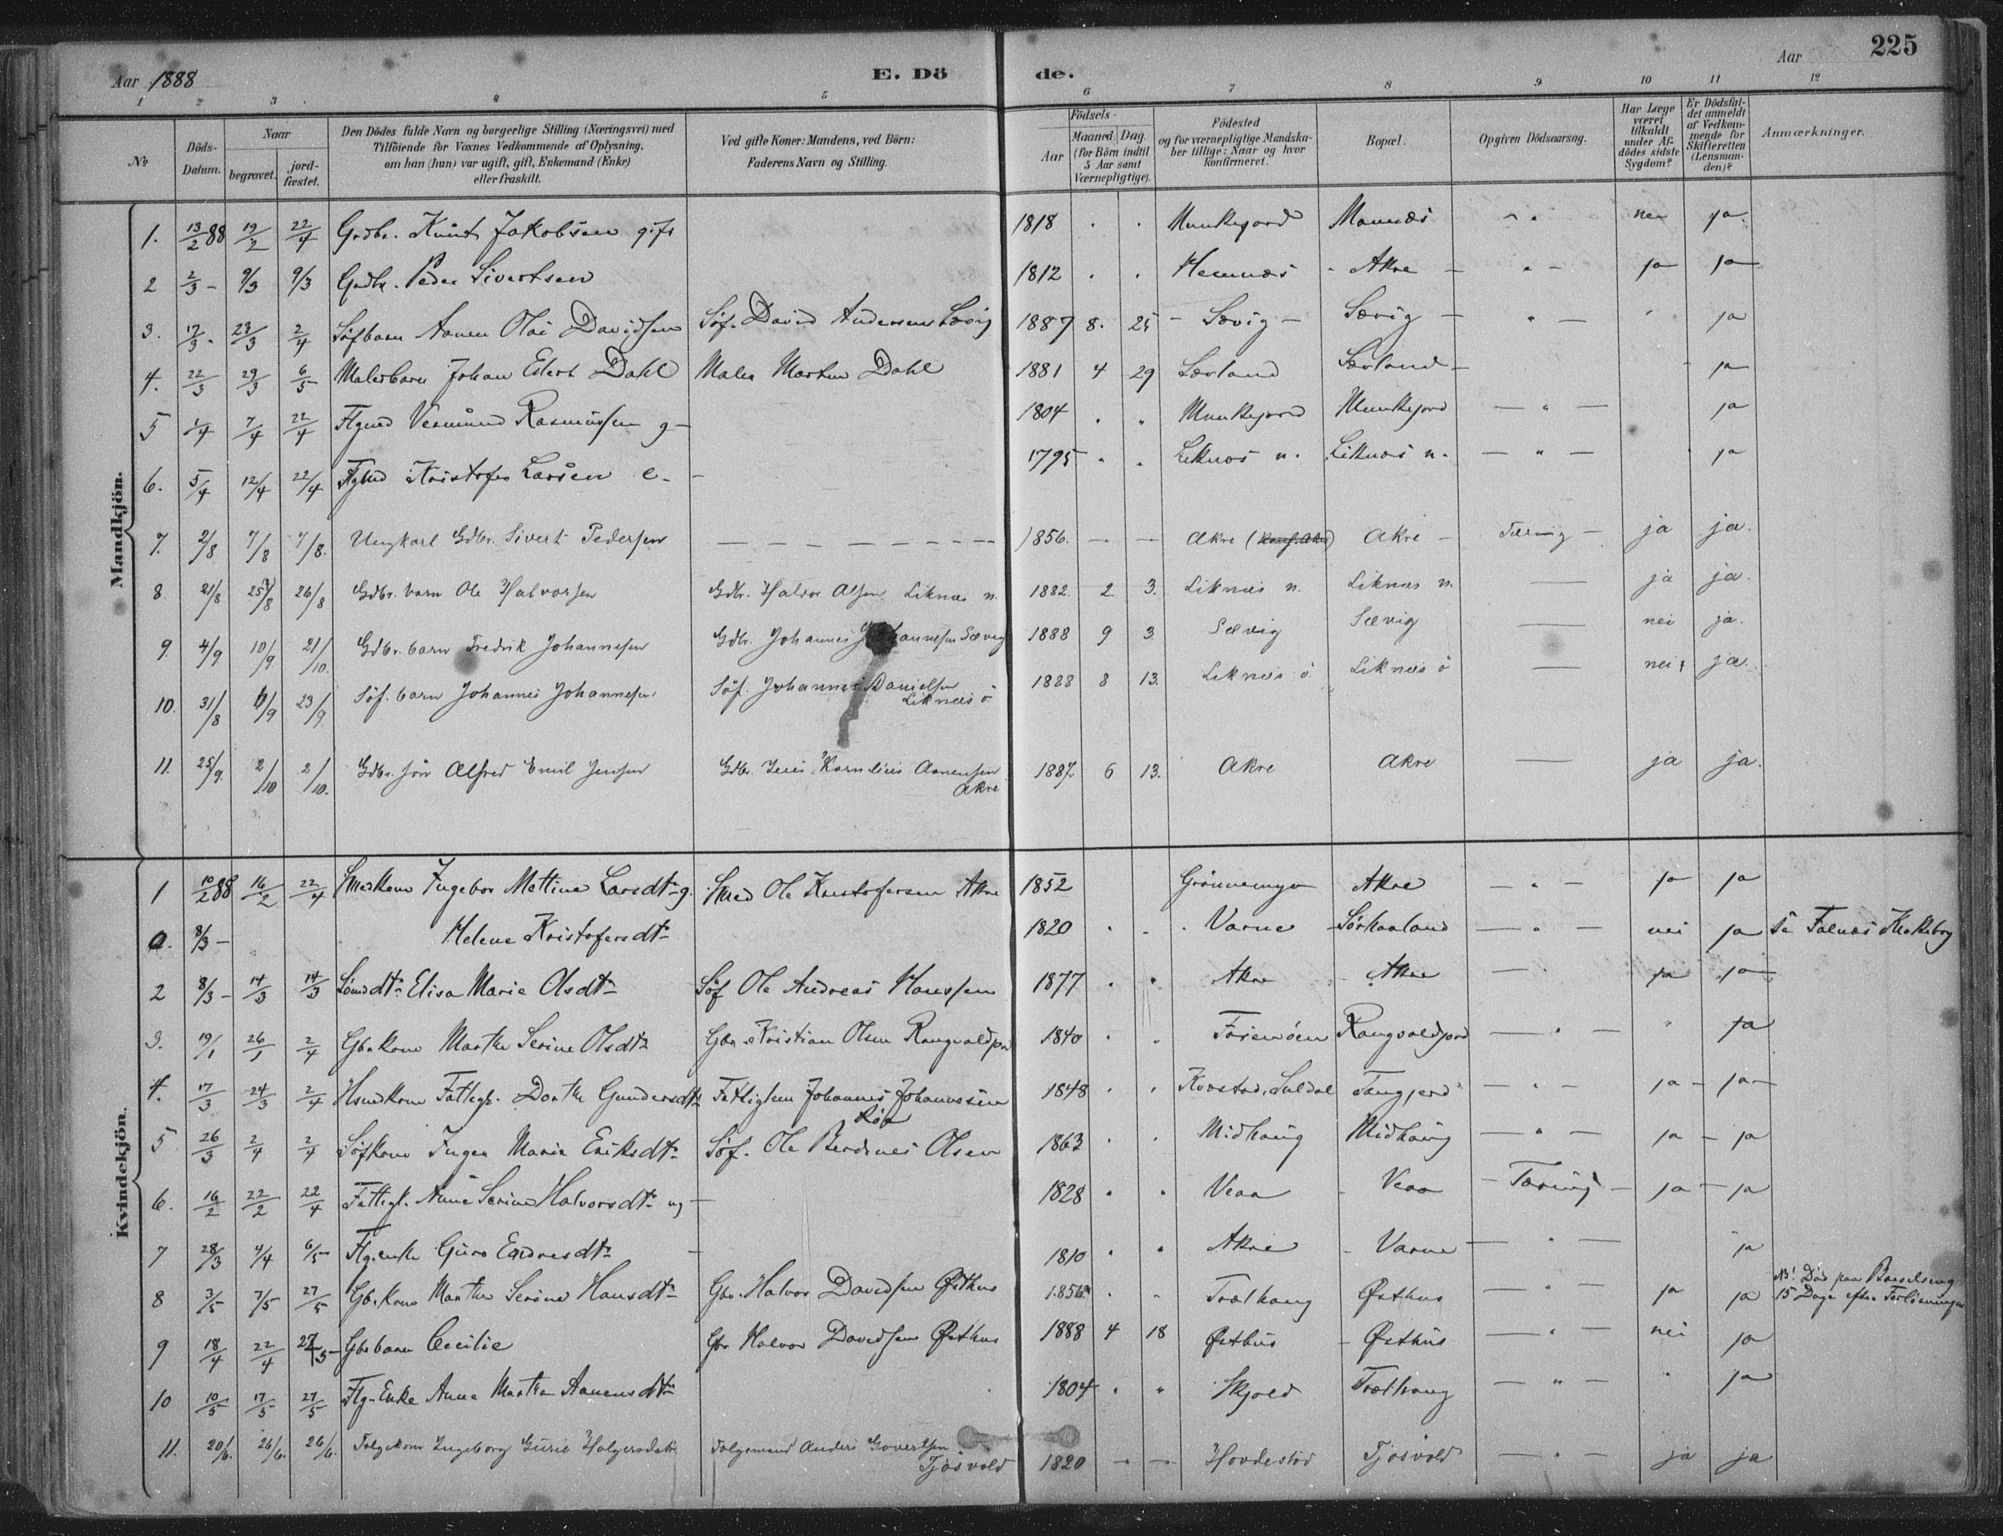 Aar 1888
E. Dö
de.
Aar
225
1 2 3 4 5 6 7 8 9 10 11 12
No
Döds-Datum.
Naar
begravet.
jord-fæstet.
Den Dödes fulde Navn og borgerlige Stilling (Næringsvei) med
Tilföiende for Voxnes Vedkommende af Oplysning,
om han (hun) var ugift, gift, Enkemand (Enke)
eller fraskilt.
Ved gifte Koner: Mandens, ved Börn:
Faderens Navn og Stilling.
Födsels-
Aar
Maaned. Dag.
(for Börn indtil
5 Aar samt
Værnepligtige).
Födested
og for værnepligtige Mandska-
ber tillige: Naar og hvor
konfirmeret.
Bopæl.
Opgiven Dödsaarsag.
Har Læge
været
tilkaldt
under Af-
dödes sidste
Sygdom?
Er Dödsfal-
det anmeldt
af Vedkom-
mende for
Skifteretten
(Lensman-
den)?
Anmærkninger.
Mandkjön.
1. 13/2 88 19/2 22/4 Grdbr. Knut Jakobsen gift 1818 . . Munkejord Mannæs " nei ja.
2 2/3 - 9/3 9/3 Grdbr. Peder Sivertsen 1812 . . Hemnæs - Akre - " - ja ja
3. 17/3. 23/3 2/4 Søfbarn Aanen Olai Davidsen Søf. David Andersen Sævig 1887 8. 25 - Sævig - Sævig - " - ja
4. 22/3 29/3 6/5 Malerbarn Johan Edert Dahl Maler Morten Dahl 1881 4 29 Sævland Sævland - ja
5 1/4 7/4 22/4 Flgmd Vermund Rasmussen g- 1804 . . Munkejord Munkejord — " — ja
6. 5/4 12/4 22/4 Flgmd Kristofer Larsen e. - 1795 . . Liknæs n. Liknæs n. — " — ja
7. 2/8 7/8 7/8. Ungkarl Gdbr. Sivert Pedersen — — — — 1856. — — Akre (Konf. Akre) Akre - Tæring - ja ja.
8. 21/8 25/8 26/8 Gdbr. barn Ole Halvorsen Gdbr. Halvor Olsen Liknæs n. 1882. 2 3. Liknæs n. Liknæs n. — ja ja.
9. 4/9 10/9. 21/10. Gdbr. barn Fredrik Johannesen Gdbr. Johannes Johannesen Sævig 1888 9 3. Sævig Sævig — nei ja.
10. 31/8 6/9 23/9. Søf. barn Johannes Johannesen Søf. Johannes Danielsen
Liknæs ö 1888 8 13. Liknæs ö. Liknæs ö — nei ja
11. 25/9. 2/10 2/10. Gdbr. søn Alfred Emil Jensen Gdbr. Jens Kornelius Aanensen
Akre 1887. 6 13. Akre Akre — ja ja.
Kvindekjön.
1 10/2 88 16/2 22/4 Smedkone Ingebor Mettine Larsdtr g. Smed Ole Kristofersen Akre 1852 Grönnemyr Akre — " — ja ja
a. 8/3 - Helene Kristofersdtr 1820 . . Varne Sörhaaland — " — nei ja
2 8/3 - 14/3 14/3 Sömdtr Elisa Marie Olsdtr Søf Ole Andreas Hanssen 1877 . . Akre Akre — . ja ja
3. 19/1 26/1 2/4 Gbrkone Marthe Serine Olsdtr Gbr. Kristian Olsen 1840 . . — " — " ja
4. 17/3 24/3 2/4 Hsmdkone Fattigl. Dorthe Gundersdtr Fattiglem Johannes Johannesen 1848 . . Suldal — " — ja - ja -
5 26/3 2/4 2/4 Søfkone Inger Marie Eriksdtr Søf. Ole Berdines Olsen 1863 . . Midhaug Midhaug — " — ja - ja
6. 16/2 22/2 22/4 Fattigl. Anne Serine Halvorsdtr ug - 1828 . . Veaa - Veaa - Tæring - ja - ja
7 28/3 4/4 6/5 Flg.enke Guro Endresdtr - 1810 . . Akre - Varne — " — ja
8 3/5 7/5 27/5 Gbrkone Marthe Serine Hansdtr Gbr. Halvor Davidsen Østhus 1856 . . Trælhaug Østhus — " — ja ja NB! Död paa Barselseng
15 Dage efter Forlösningen
9 18/4 22/4 27/5 - Gbrbarn Cecilie Gbr Halvor Davidsen Østhus 1888 4 18 Østhus - Østhus — " — nei ja
10 10/5 17/5 27/5 Flg.-Enke Anne Marthe Aanensdtr 1804 . " Skjold Trælhaug — " — " ja
11. 20/6. 26/6. 26/6. Folgekone Ingeborg Gurie Holgersdatr. Folgemand Anders Govertsen
Tjøsvold 1820 — — Hovdestad Tjøsvold — " — ja ja